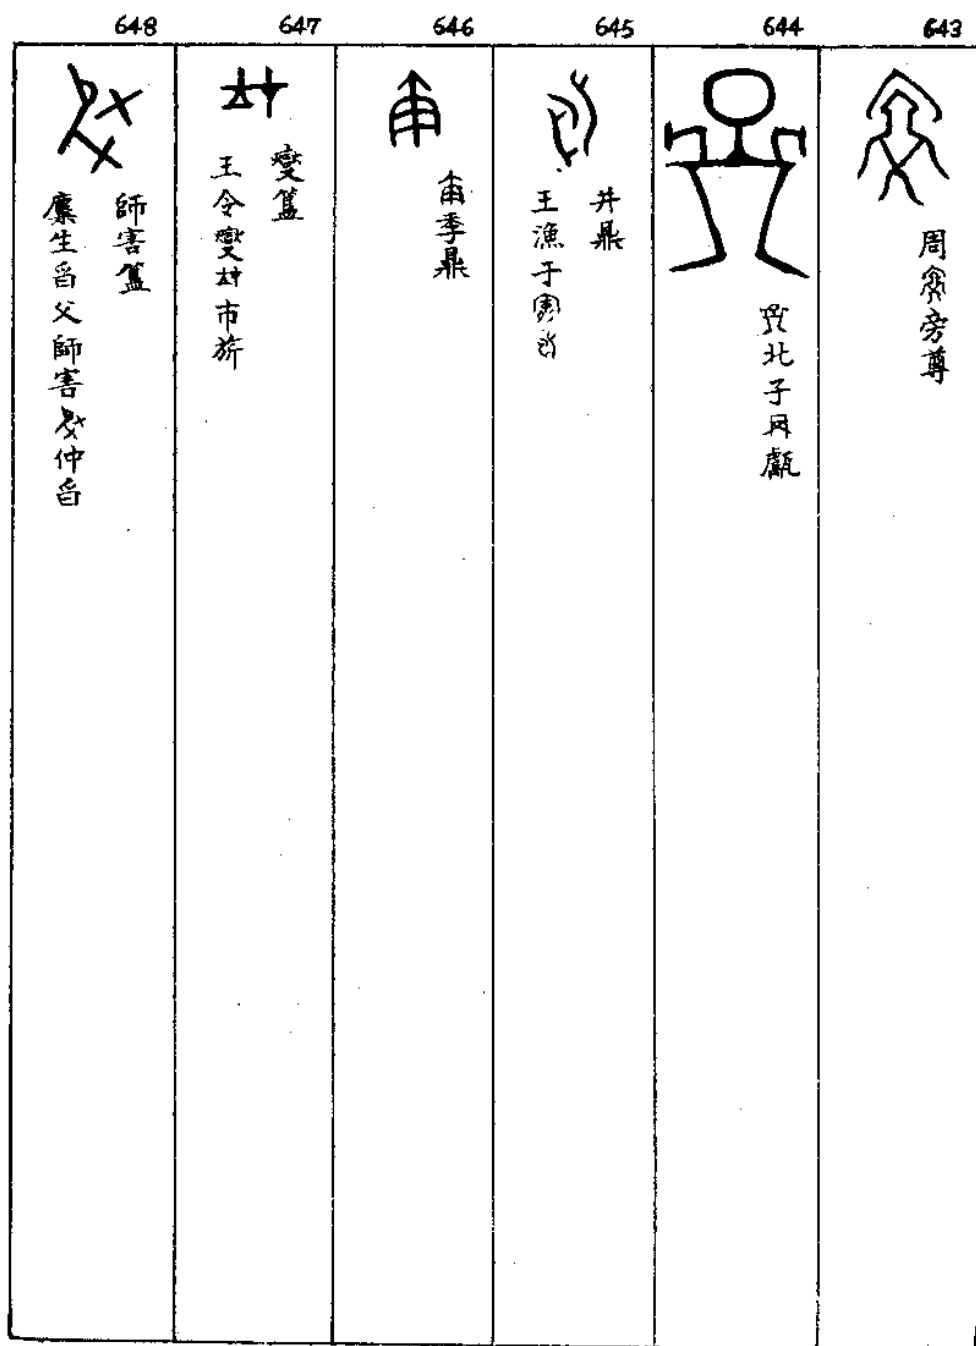 643
周旁尊
644
北子甗
645
井鼎
王漁于
646
季鼎
647
燮簋
王令燮市旂
648
師害簋
麋生曶父師害仲曶